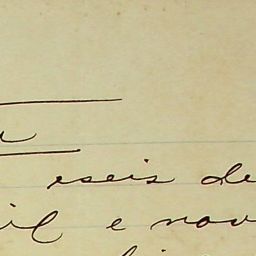 eseis de
il e nov